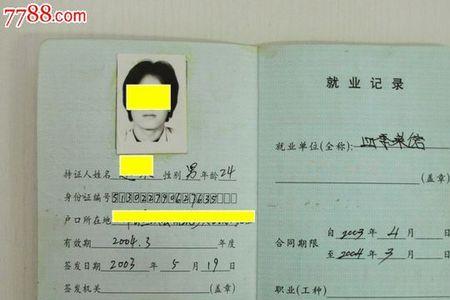 7788.com
持证人姓名 性别 男 年龄 24
身份证编号 513022790627635
户口所在地
有效期 2004.3 年度
签发日期 2003 年 5 月 19 日
签发机关 (盖章)
就业记录
就业单位(全称):
(盖章)
合同期限
自 2003 年 4 月
至 2004 年 3 月
职业(工种)